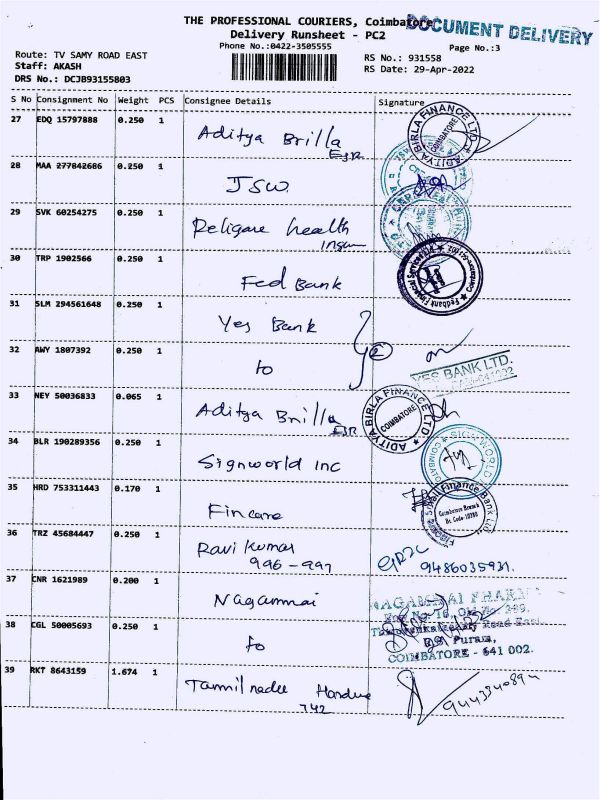 THE PROFESSIONAL COURIERS, Coimbatore
DOCUMENT DELIVERY
Delivery Runsheet - PC2
Phone No.:0422-3505555
Page No.:3
Route: TV SAMY ROAD EAST
RS No.: 931558
Staff: AKASH
RS Date: 29-Apr-2022
DRS No.: DCJB93155803
S No Consignment No Weight PCS Consignee Details Signature
27 EDQ 15797888 0.250 1
Aditya Brilla
ADITYA BIRLA FINANCE LTD. COIMBATORE
28 MAA 277842686 0.250 1
JSW
29 SVK 60254275 0.250 1
Religare health
30 TRP 1902566 0.250 1
Fed Bank
Fedbank Financial Services Ltd
31 SLM 294561648 0.250 1
Yes Bank
32 AWY 1807392 0.250 1
to
2
YES BANK LTD.
33 NEY 50036833 0.065 1
Aditya Brilla
ADITYA BIRLA FINANCE LTD. COIMBATORE
34 BLR 190289356 0.250 1
Signworld inc
SIGN WORLD COIMBATORE
35 HRD 753311443 0.170 1
Fincare
Fincare Small Finance Bank Ltd.
Coimbatore Branch
36 TRZ 45684447 0.250 1
Ravi Kumar
996-997
9486035931
37 CNR 1621989 0.200 1
Nagammai
NAGAMMAI PHARMA
38 CGL 50005693 0.250 1
to
R.S. Puram,
COIMBATORE - 641 002.
39 RKT 8643159 1.674 1
Tamilnadu
742